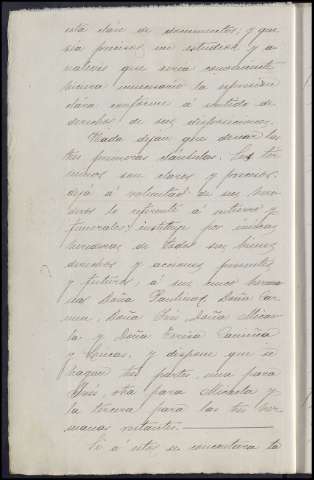 esta clase de documentos, y que
sea preciso, un estudio, y a
nuestro que sería conveniente
hiciera necesario la apreciación
clara conforme á sentido de
derecho de sus disposiciones.
Nada dejan que desear las
tres primeras cláusulas. Los tér
minos son claros y precisos;
deja á voluntad de sus here
deros lo referente á entierro y
funerales; instituye por únicas
herederas de todos sus bienes
derechos y acciones presentes
y futuros, á sus cinco herma
nas Doña Paulina, Doña Car
men, Doña Inés, Doña Micae
la y Doña Teresa Camiña
y Lucas, y dispone que se
hagan tres partes, una para
Inés, otra para Micaela y
la tercera para las tres her
manas restantes.
Si á esto se concentrara la